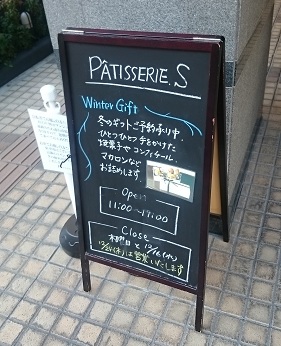 PÂTISSERIE.S
Winter Gift
冬のギフトご予約承り中
ひとつひとつ手をかけた
焼菓子やコンフィチュール、
マカロンなど
お詰めします
Open
11:00~19:00
Close
木曜日と 12/16(水)
12/24(木)は営業いたします